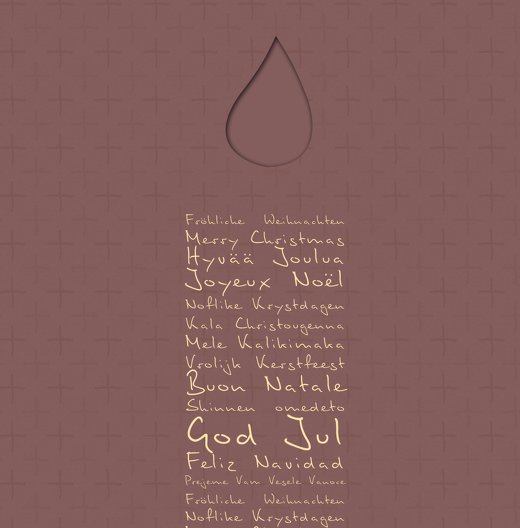 Fröhliche Weihnachten
Merry Christmas
Hyvää Joulua
Joyeux Noël
Noflike Krystdagen
Kala Christougenna
Mele Kalikimaka
Vrolijk Kerstfeest
Buon Natale
Shinnen omedeto
God Jul
Feliz Navidad
Prejeme Vam Vesele Vanoce
Fröhliche Weihnachten
Noflike Krystdagen